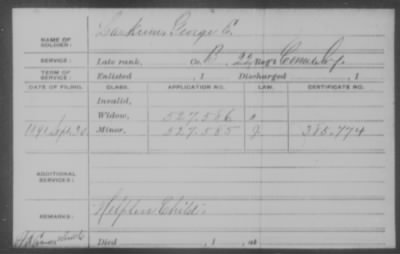 NAME OF SOLDIER: George E.
SERVICE: Late rank, Co. B, 22 Reg't Conn. Inf.
TERM OF SERVICE: Enlisted , 1 Discharged , 1
DATE OF FILING. CLASS. APPLICATION NO. LAW. CERTIFICATE NO.
Invalid,
Widow, 527.586
1891 Sept 30. Minor, 527.585 G 385.774
ADDITIONAL SERVICES:
REMARKS: Helpless Child.
Died , 1 , at